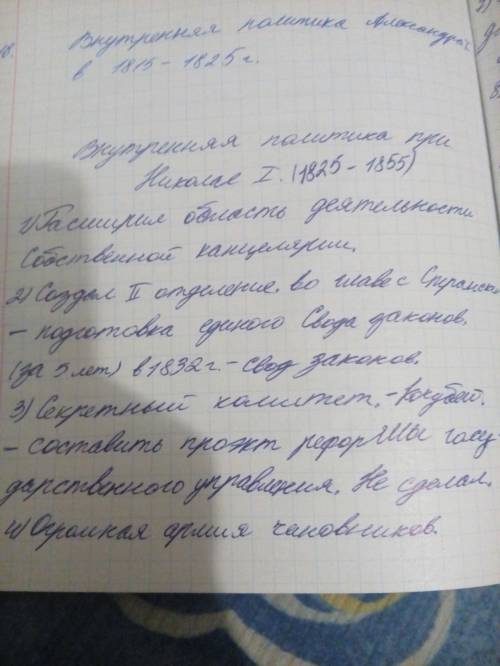 18.
Внутренняя политика Александра
в 1815 - 1825 г.
Внутренняя политика при
Николае I. (1825 - 1855)
1) Расширил область деятельности
Собственной канцелярии.
2) Создал II отделение. во главе с
- подготовка единого Свода законов.
(за 5 лет) в 1832 г. - свод законов.
3) Секретный комитет. - Кочубей.
- составить проэкт реформы госу-
дарственного управления. Не сделал.
4) Огромная армия чановников.